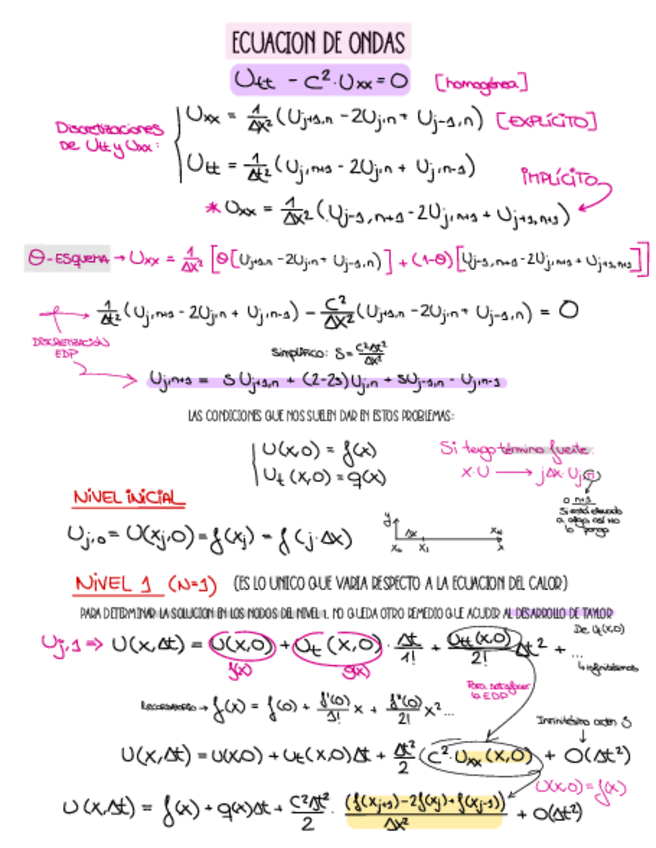 ECUACION DE ONDAS
Utt - C²·Uxx = 0 [homogénea]
Discretizaciones de Utt y Uxx:
Uxx = 1/Δx² (Uj+1,n - 2Uj,n + Uj-1,n) [EXPLÍCITO]
Utt = 1/Δt² (Uj,n+1 - 2Uj,n + Uj,n-1)
IMPLÍCITO
* Uxx = 1/Δx² (Uj-1,n+1 - 2Uj,n+1 + Uj+1,n+1)
Θ-ESQUEMA → Uxx = 1/Δx² [Θ[Uj+1,n - 2Uj,n + Uj-1,n)] + (1-Θ)[Uj-1,n+1 - 2Uj,n+1 + Uj+1,n+1]]
1/Δt² (Uj,n+1 - 2Uj,n + Uj,n-1) - C²/Δx² (Uj+1,n - 2Uj,n + Uj-1,n) = 0
DISCRETIZACIÓN EDP
Simplifico: S = C²Δt²/Δx²
Uj,n+1 = SUj+1,n + (2-2s)Uj,n + SUj-1,n - Uj,n-1
LAS CONDICIONES QUE NOS SUELEN DAR EN ESTOS PROBLEMAS:
U(x,0) = f(x)
Ut(x,0) = g(x)
Si tengo término fuente:
x·U → jΔx·Uj,n
o n+1
Si está elevado a algo, así no lo pongo
NIVEL INICIAL
Uj,0 = U(xj,0) = f(xj) = f(j·Δx)
y Δx
x0 x1 xN x
NIVEL 1 (N=1) (ES LO UNICO QUE VARIA RESPECTO A LA ECUACION DEL CALOR)
PARA DETERMINAR LA SOLUCION EN LOS NODOS DEL NIVEL 1, NO QUEDA OTRO REMEDIO QUE ACUDIR AL DESARROLLO DE TAYLOR
De Ut(x,0)
Uj,1 ⇒ U(x,Δt) = U(x,0) + Ut(x,0)·Δt/1! + Utt(x,0)/2! Δt² + ...
f(x) g(x)
↳ infinitésimos
Para satisfacer la EDP
Recordatorio → f(x) = f(0) + f'(0)/1! x + f''(0)/2! x²...
Infinitésimo orden
U(x,Δt) = U(x,0) + Ut(x,0)Δt + Δt²/2 (C²·Uxx(x,0)) + O(Δt²)
U(x,0) = f(x)
U(x,Δt) = f(x) + g(x)Δt + C²Δt²/2 · (f(xj+1) - 2f(xj) + f(xj-1))/Δx² + O(Δt²)